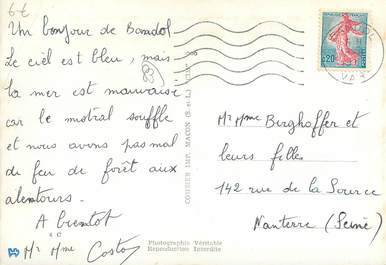 6€
Un bonjour de Bandol
Le ciel est bleu, mais
la mer est mauvaise
car le mistral souffle
et nous avons pas mal
de feu de forêt aux
alentours.
A bientot
Mr Mme Costo
COMBIER IMP. MACON (S.-et-L.) "CIM"
Photographie Véritable
Reproduction Interdite
0,20
VAR
Mr Mme Berghoffer et
leurs filles
142 rue de la Source
Nanterre (Seine)